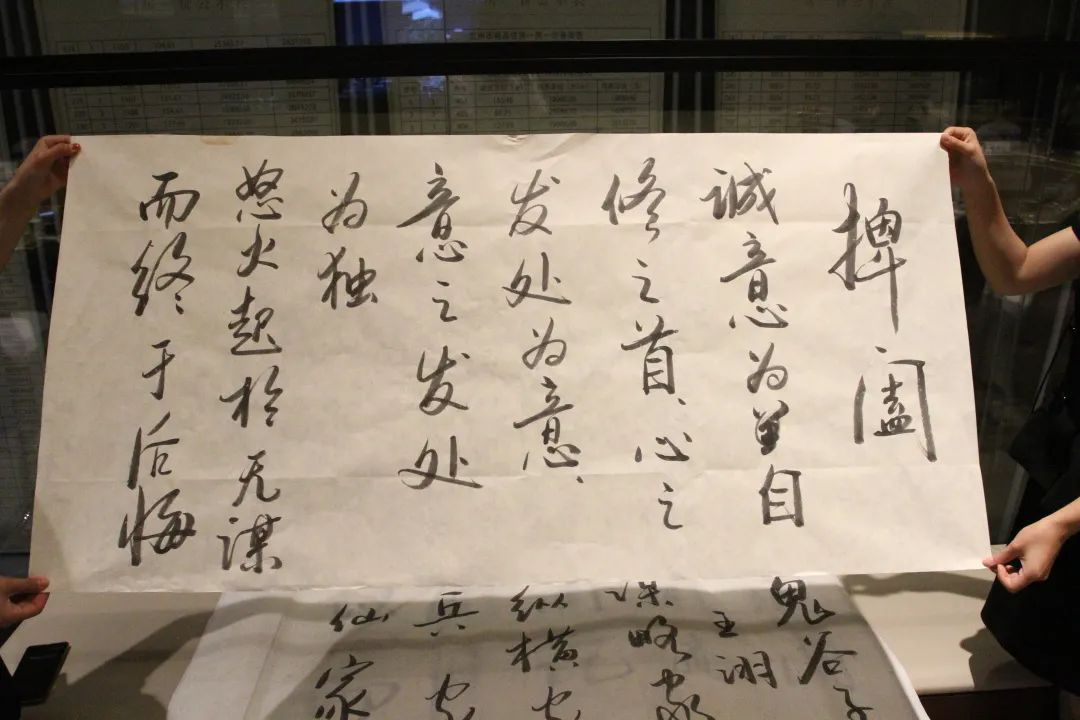 捭阖
诚意为自
修之首、心之
发处为意、
意之发处
为独
怒火起於无谋
而终于后悔
鬼谷子
王诩
谋略家
纵横家
兵家
仙家